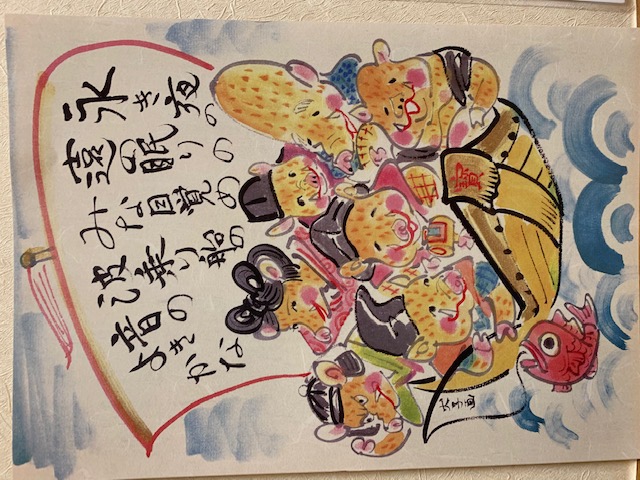 永き夜の
遠の眠りの
みな目覚め
波乗り船の
音のよきかな
寶